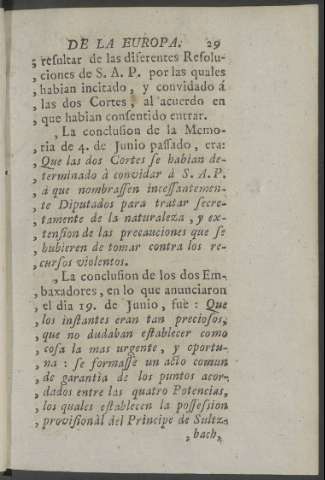 DE LA EUROPA. 29
, resultar de las diferentes Resolu-
, ciones de S. A. P. por las quales
, habian incitado, y convidado á
, las dos Cortes, al acuerdo en
, que habian consentido entrar.
, La conclusion de la Memo-
, ria de 4. de Junio passado, era:
, Que las dos Cortes se habian de-
, terminado à convidar à S. A. P.
, á que nombrassen incessantemen-
, te Diputados para tratar secre-
, tamente de la naturaleza, y ex-
, tension de las precauciones que se
, hubieren de tomar contra los re-
, cursos violentos.
, La conclusion de los dos Em-
, baxadores, en lo que anunciaron
, el dia 19. de Junio, fue: Que
, los instantes eran tan preciosos,
, que no dudaban establecer como
, cosa la mas urgente, y oportu-
, na: se formasse un acto comun
, de garantia de los puntos acor-
, dados entre las quatro Potencias,
, los quales establecen la possession
, provisionàl del Principe de Sultz-
, bach,